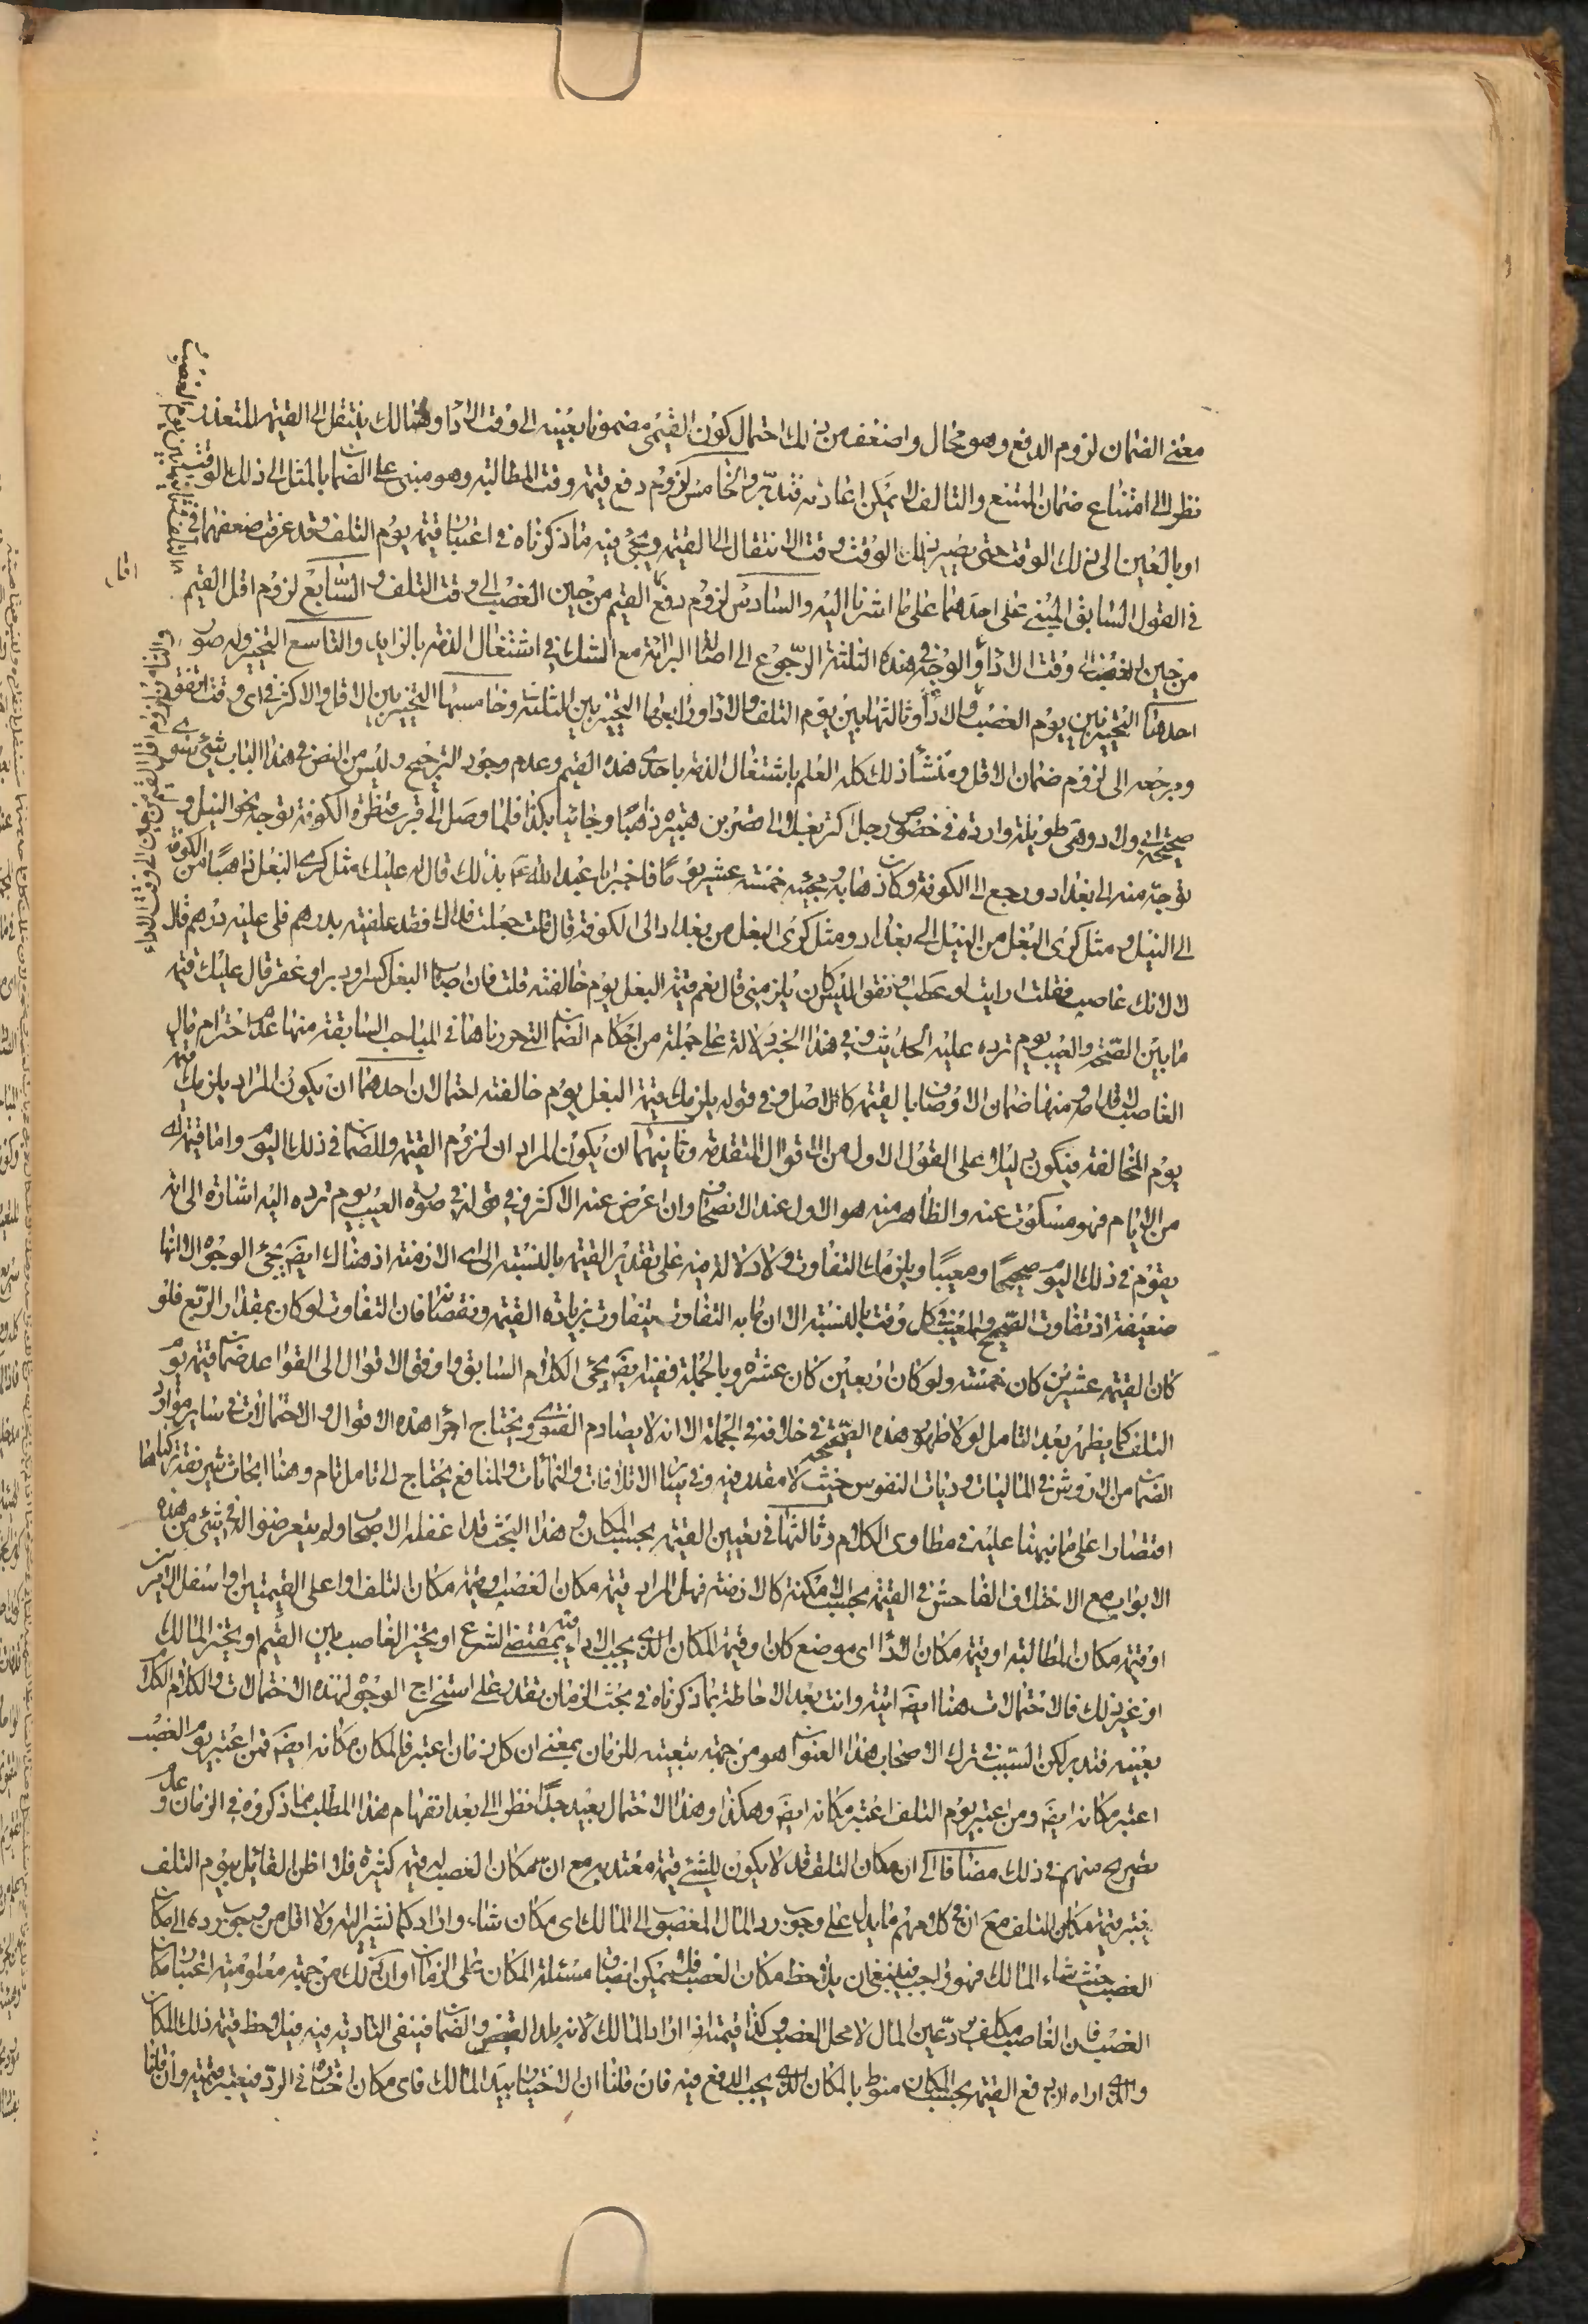 معنى الضمان لزوم الدفع وهو محال واضعف من ذلك احتمال كون القيمي مضمونا بعينه الى وقت الاداء وهنالك ينتقل الى القيمة المتعذر
نظرا الى امتناع ضمان الممتنع والتالف لا يمكن اعادته فتدبّر والخامس لزوم دفع قيمة وقت المطالبة وهو مبنى على الضمان بالمثل الى ذلك الوقت
او بالعين الى ذلك الوقت حتى يصير ذلك الوقت وقت الانتقال الى القيمة ويجئ فيه ما ذكرناه في اعتبار قيمة يوم التلف وقد عرفت ضعفهما في
في القول السابق المبنى على احدهما على ما اشرنا اليه والسادس لزوم دفع القيم من حين الغصب الى وقت التلف والسّابع لزوم اقل القيم
من حين الغصب الى وقت الاداء والوجه في هذه الثلثة الرّجوع الى اصالة البرائة مع الشك في اشتغال الذمة بالزايد والتاسع التخيير وله صور
احدها التخيير بين يوم الغصب والاداء وثالثها بين يوم التلف والاداء ورابعها التخيير بين الثلثة وخامسها التخيير بين الاقل والاكثر في اي وقت اتفق
ومرجعه الى لزوم ضمان الاقل ومنشأ ذلك كله العلم باشتغال الذمة باحدى هذه القيم وعدم وجود الترجيح وليس من النص في هذا الباب شئ سوى
صحيحة ابي ولاد وهي طويلة واردة في خصوص رجل اكترى بغلا الى قصر بن هبيرة ذاهبًا وجائيا بكذا فلما وصل الى قرب قنطرة الكوفة توجه نحو النيل و
توجه منه الى بغداد ورجع الى الكوفة وكان ذهابه ومجيئه خمسة عشر يومًا فاخبر ابا عبد الله ع بذلك قال له عليك مثل كرى البغل ذاهبًا من الكوفة
الى النيل ومثل كرى البغل من النيل الى بغداد ومثل كرى البغل من بغداد الى الكوفة قال قلت جعلت فداك فقد علفته بدراهم فلى عليه درهم قال
لا لانك غاصب فقلت ارايت لو عطب او نفق اليس كان يلزمنى قال نعم قيمة البغل يوم خالفته قلت فان اصاب البغل كسر او دبر او عقر قال عليك قيمة
ما بين الصّحة والعيب يوم ترده عليه الحديث وفي هذا الخبر دلالة على جملة من احكام الضمان التي حررناها في المباحث السابقة منها عدم احترام مال
الغاصب منها ضمان الاوصاف بالقيمة كالاصل وفي قوله يلزمك قيمة البغل يوم خالفته احتمالان احدهما ان يكون المراد يلزمك قيمة
يوم المخالفة فيكون دليلا على القول الاول من الاقوال المتقدمة وثانيهما ان يكون المراد ان لزوم القيمة والضمان في ذلك اليوم واما قيمة اى
من الايام فهو مسكوت عنه والظاهر منه هو الاول عند الانصاف وان اعرض عنه الاكثر وفي قوله في صورة العيب يوم ترده اليه اشارة الى انه
يقوم في ذلك اليوم صحيحًا ومعيبًا ويلزمك التفاوت ولا دلالة فيه على تقدير القيمة بالنسبة الى اى الازمنة اذ هناك ايضا يجئ الوجوه الا انها
ضعيفة اذ تفاوت الصحيح والمعيب في كل وقت بالنسبة الا ان ما به التفاوت يتفاوت بزيادة القيمة ونقصانها فان التفاوت لو كان بمقدار الربع فلو
كان القيمة عشرين كان خمسة ولو كان اربعين كان عشرة وبالجملة ففيه ايضا يجئ الكلام السابق واوفق الاقوال الى القواعد ضمان قيمة يوم
التلف كما يظهر بعد التامل لو لا ظهور هذه الصحيحة في خلافه في الجملة الا انه لا يصادم الفتوى ويحتاج اجراء هذه الاقوال والاحتمالات في ساير موارد
الضمان من الاروش في الماليات وديات النفوس حيث لا مقدر فيه وفي ساير الاتلافات والنمائات والمنافع يحتاج الى تامل تام وهنا ابحاث شريفة تركناها
اقتصارا على ما نبهنا عليه في مطاوى الكلام وثالثها في تعيين القيمة بحسب المكان وهذا البحث قد اغفله الاصحاب ولم يتعرضوا له في شئ من هذه
الابواب مع الاختلاف الفاحش في القيمة بحسب الامكنة كالازمنة فهل المراد قيمة مكان الغصب او قيمة مكان التلف او اعلى القيمتين او اسفل الامرين
او قيمة مكان المطالبة او قيمة مكان الاداء اى موضع كان او قيمة المكان الذى يجب الاداء فيه بمقتضى الشرع او يخير الغاصب بين القيم او يخير المالك
او غير ذلك فالاحتمالات هنا ايضا اتية وانت بعد الاحاطة بما ذكرناه في بحث الزمان تقدر على استخراج الوجوه لهذه الاحتمالات والكلام الكلام
بعينه فتدبر لكن السبب في ترك الاصحاب هذا العنوان هو من جهة تبعيته للزمان بمعنى ان كل زمان اعتبر فالمكان مكانه ايضا فمن اعتبر يوم الغصب
اعتبر مكانه ايضا ومن اعتبر يوم التلف اعتبر مكانه ايضا وهكذا وهذا الاحتمال بعيد جدًّا نظرا الى بعد انفهام هذا المطلب مما ذكروه في الزمان وعدم
تصريح منهم في ذلك مضافا الى ان مكان التلف قد لا يكون للشئ قيمة معتد به مع ان مكان الغصب له قيمة كثيرة فلا اظن القائل بيوم التلف
يعتبر قيمة مكان التلف مع ان في كلامهم ما يدل على وجوب رد المال المغصوب الى المالك اى مكان شاء واراد كما نشير اليه ولا اقل من وجوب رده الى مكان
الغصب حيث شاء المالك فهو واجب فينبغى ان يلاحظ مكان الغصب فلا يمكن ابتناء مسئلة المكان على الزمان او ان ذلك من جهة معلومية اعتبار مكان
الغصب فان الغاصب مكلف برد عين المال لا محل الغصب وكذا قيمته اذا اراد المالك لانه بلد القبض والضمان فينبغى التادية فيه فيلاحظ قيمة ذلك المكان
والذى اراه ان دفع القيمة بحسب المكان منوط بالمكان الذى يجب الدفع فيه فان قلنا ان الاختيار بيد المالك فاى مكان اختاره في الرد فيعتبر قيمته وان قلنا
والثامن لزوم اقل القيم من حين الى وقت الاداء